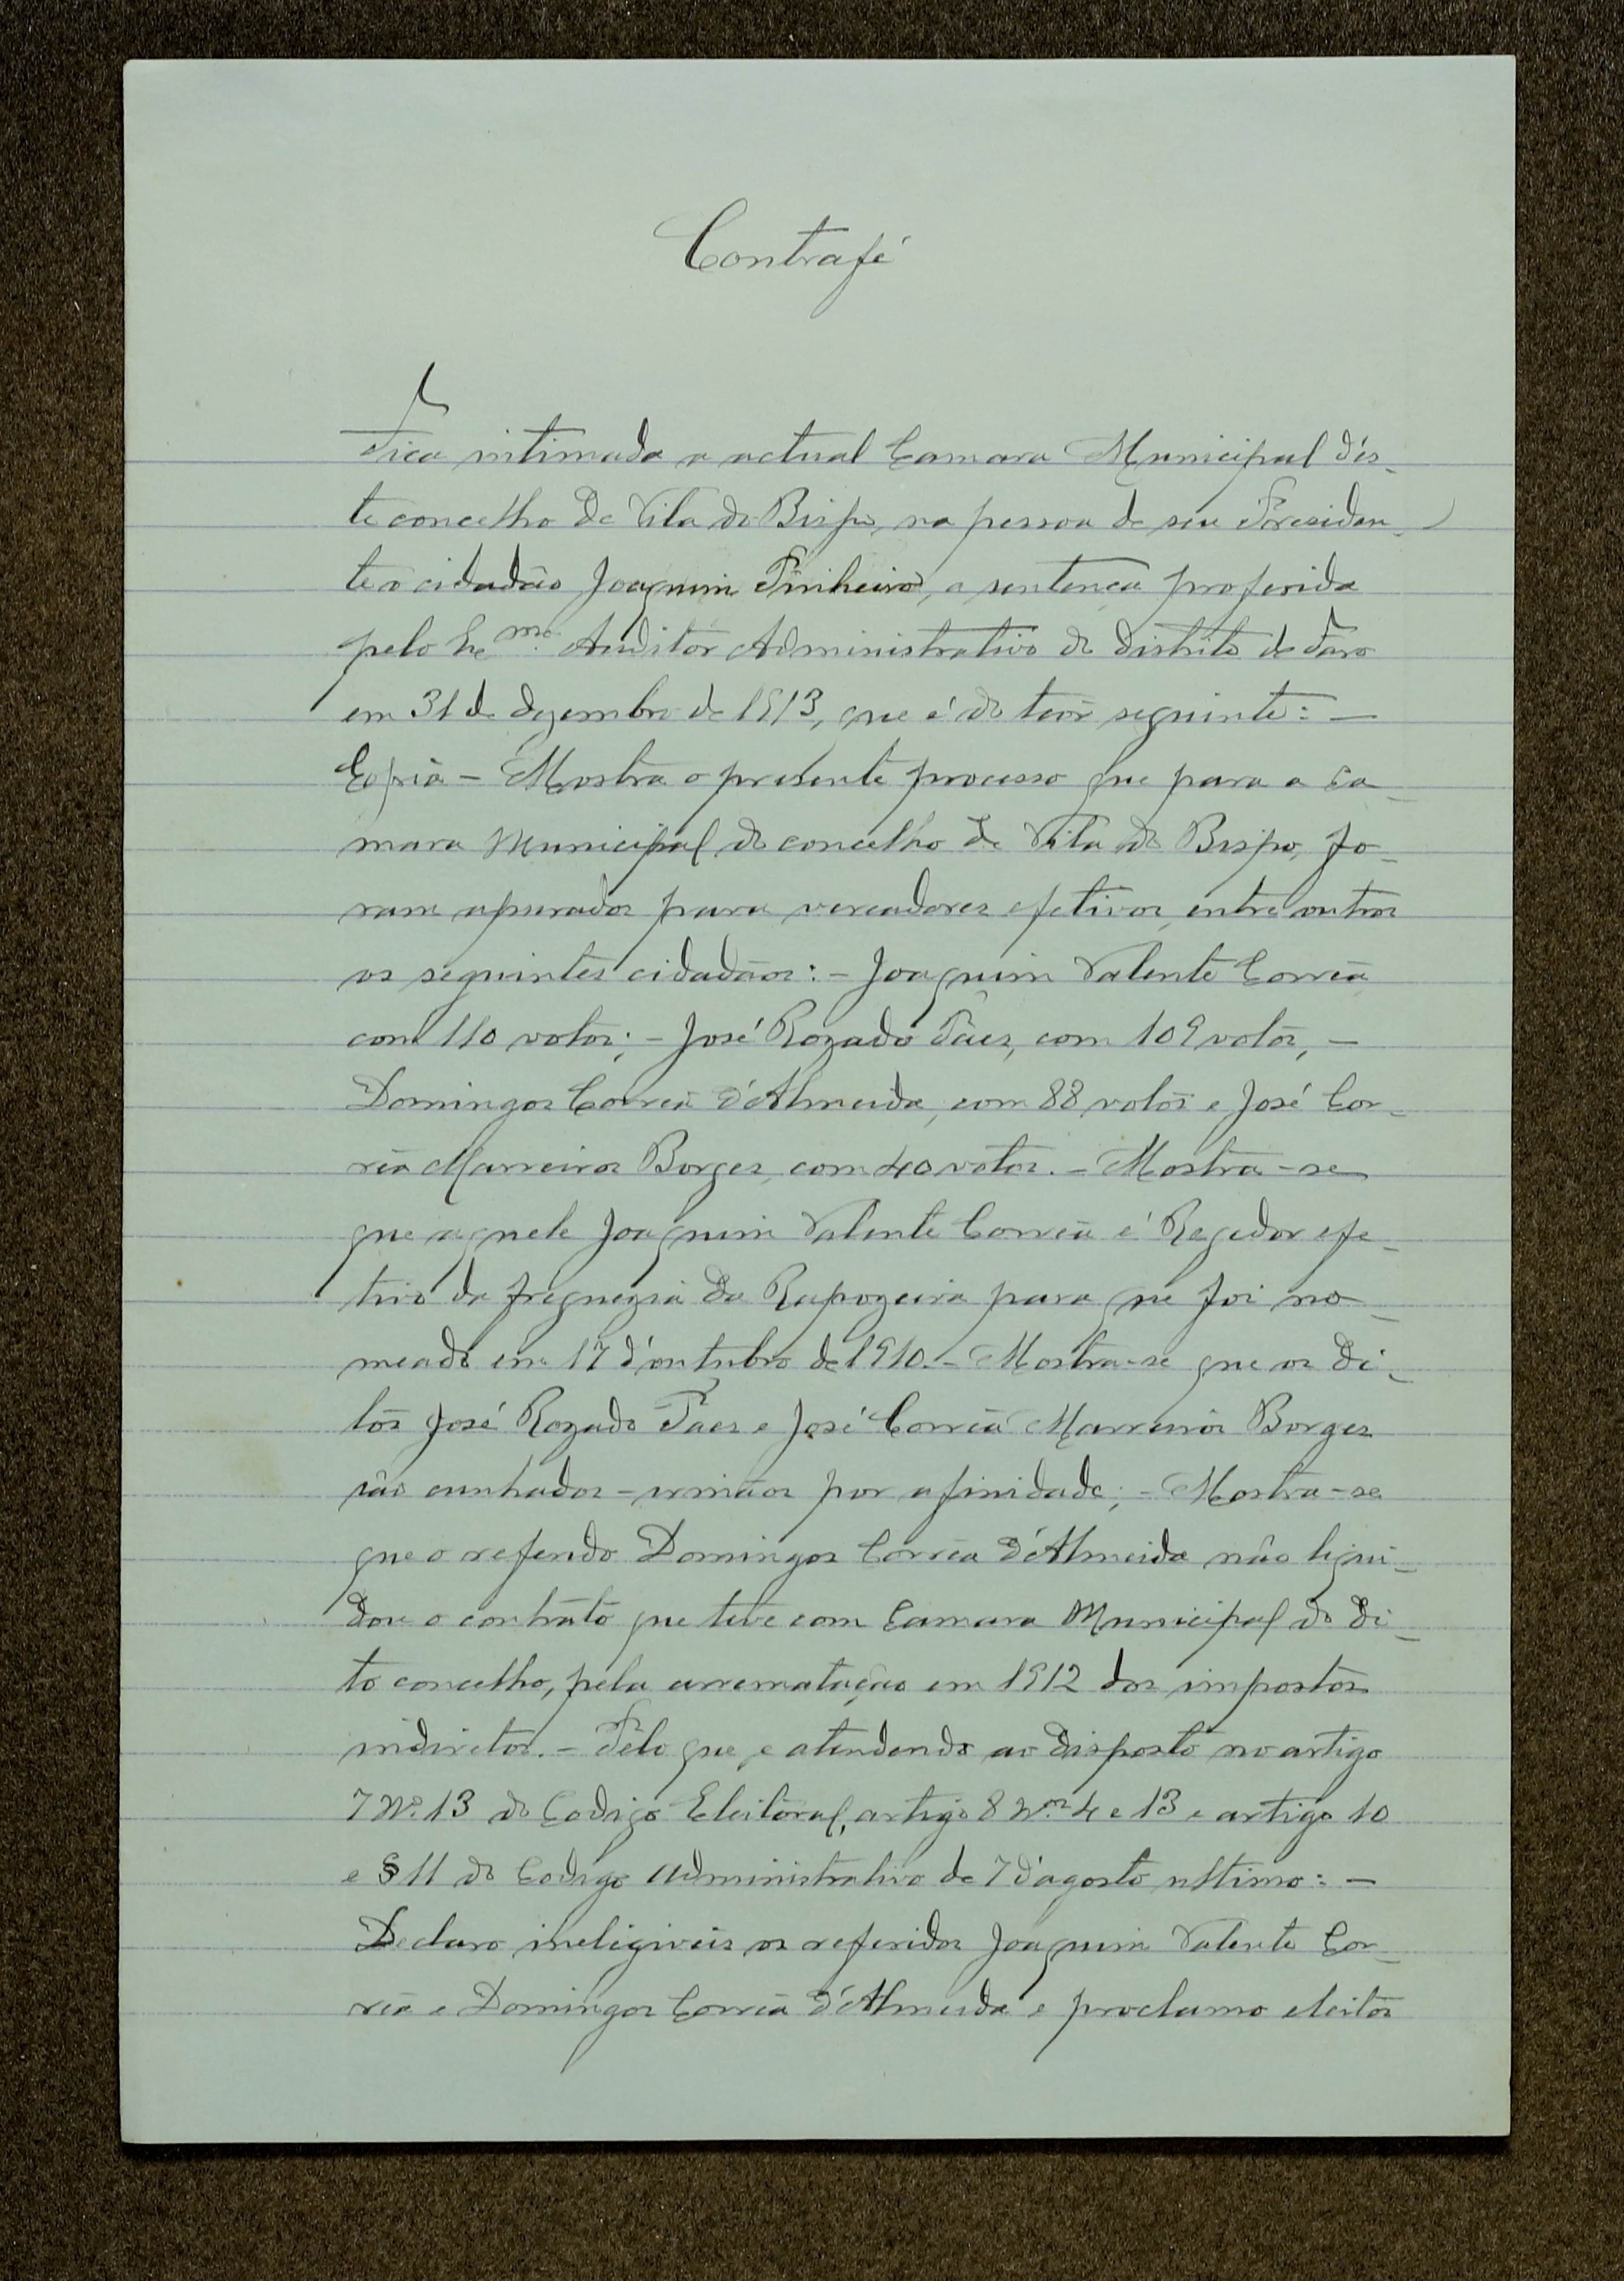 Contrafé
Fica intimada a actual Camara Municipal dês-
te concelho de Vila do Bispo, na pessoa de seu Presiden-
te o cidadão Joaquim Pinheiro, a sentença proferida
pelo Auditor Administrativo do distrito de Faro
em 31 de dezembro de 1913, que é do teôr seguinte: —
Copia — Mostra o presente processo que para a Ca-
mara Municipal do concelho de Vila do Bispo, fo-
ram apurados para vereadores efetivos, entre outros
os seguintes cidadãos: — Joaquim Valente Corrêa
com 110 votos; — José Rozado Paes, com 109 votos, —
Domingos Corrêa d'Almeida, com 88 votos e José Cor-
rêa Marreiros Borges, com 40 votos. — Mostra-se
que aquele Joaquim Valente Corrêa é Regedor efe-
tivo da freguezia da Rapozeira para que foi no-
meado em 17 d'outubro de 1910. — Mostra-se que os di-
tos José Rozado Paes e José Corrêa Marreiros Borges
são cunhados — irmãos por afinidade; — Mostra-se
que o referido Domingos Corrêa d'Almeida não liqui-
dou o contráto que teve com Camara Municipal do di-
to concelho, pela arrematação em 1912 dos impostos
indiretos. — Pelo que, e atendendo ao disposto no artigo
7 Nº. 13 do Codigo Eleitoral, artigo 8 Nos. 4 e 13 e artigo 10
e § 11 do Codigo Administrativo de 7 d'agosto ultimo: —
Declaro ineligiveis os referidos Joaquim Valente Cor-
rêa e Domingos Corrêa d'Almeida e proclamo eleitos